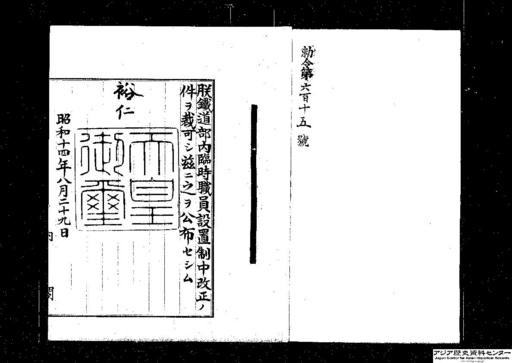 勅令第六百十五號
朕鐵道部內臨時職員設置制中改正ノ
件ヲ裁可シ茲ニ之ヲ公布セシム
裕仁
天皇御璽
昭和十四年八月二十九日
内閣
アジア歴史資料センター
Japan Center for Asian Historical Records